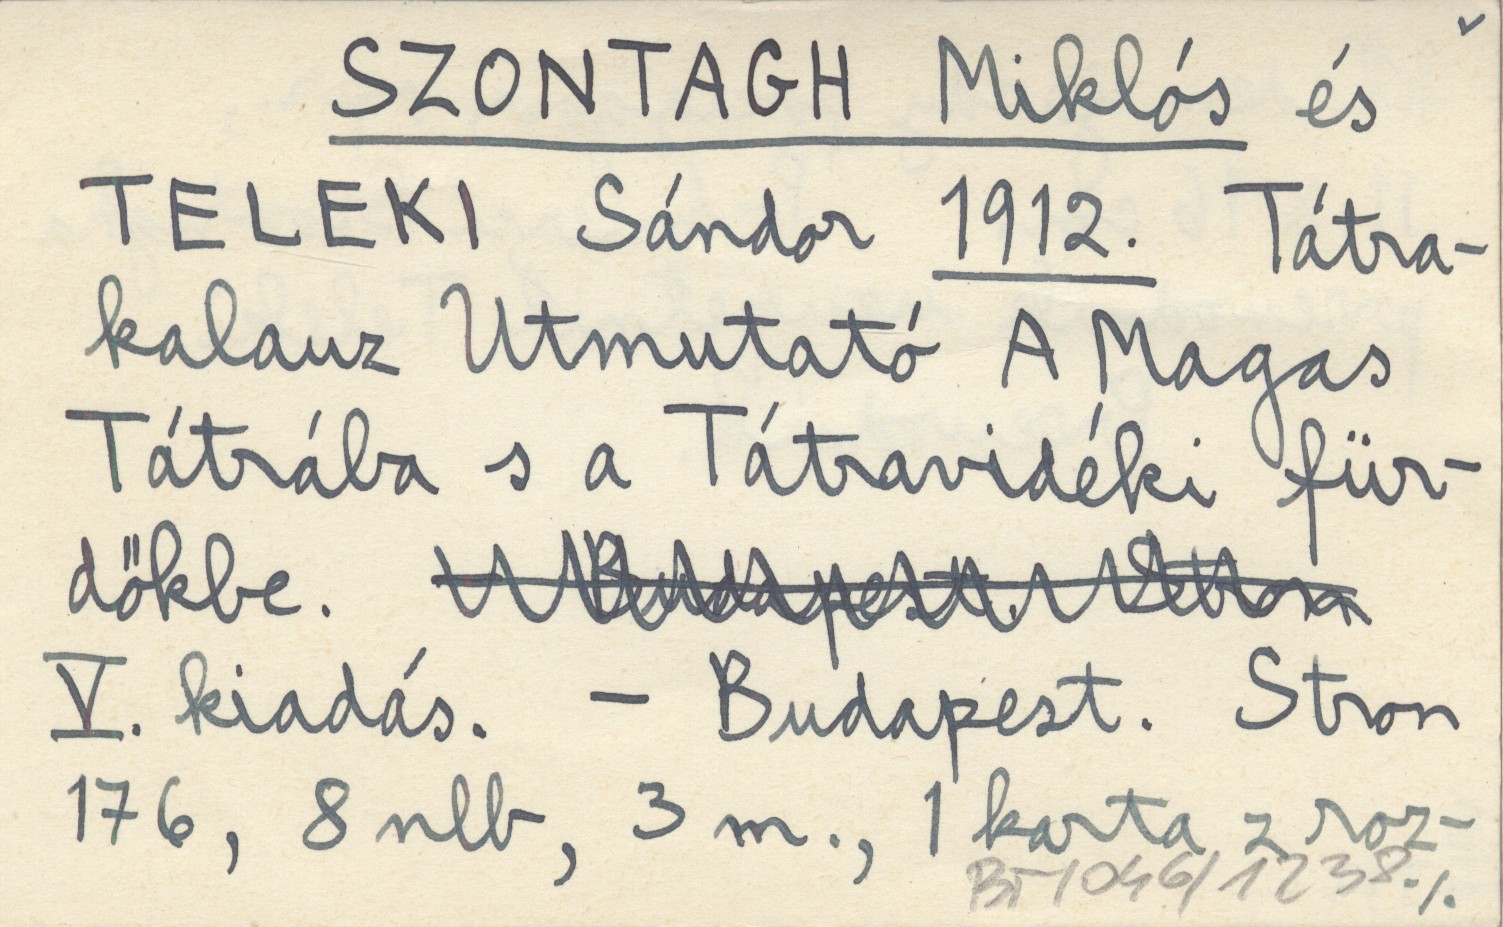 SZONTAGH Miklós és
TELEKI Sándor 1912. Tátra-
kalauz Utmutató A Magas
Tátrába s a Tátravidéki für-
dőkbe. Budapest. Stron
V. kiadás. – Budapest. Stron
176, 8 nlb, 3 m., 1 karta z roz-
BT/046/1238 ./.